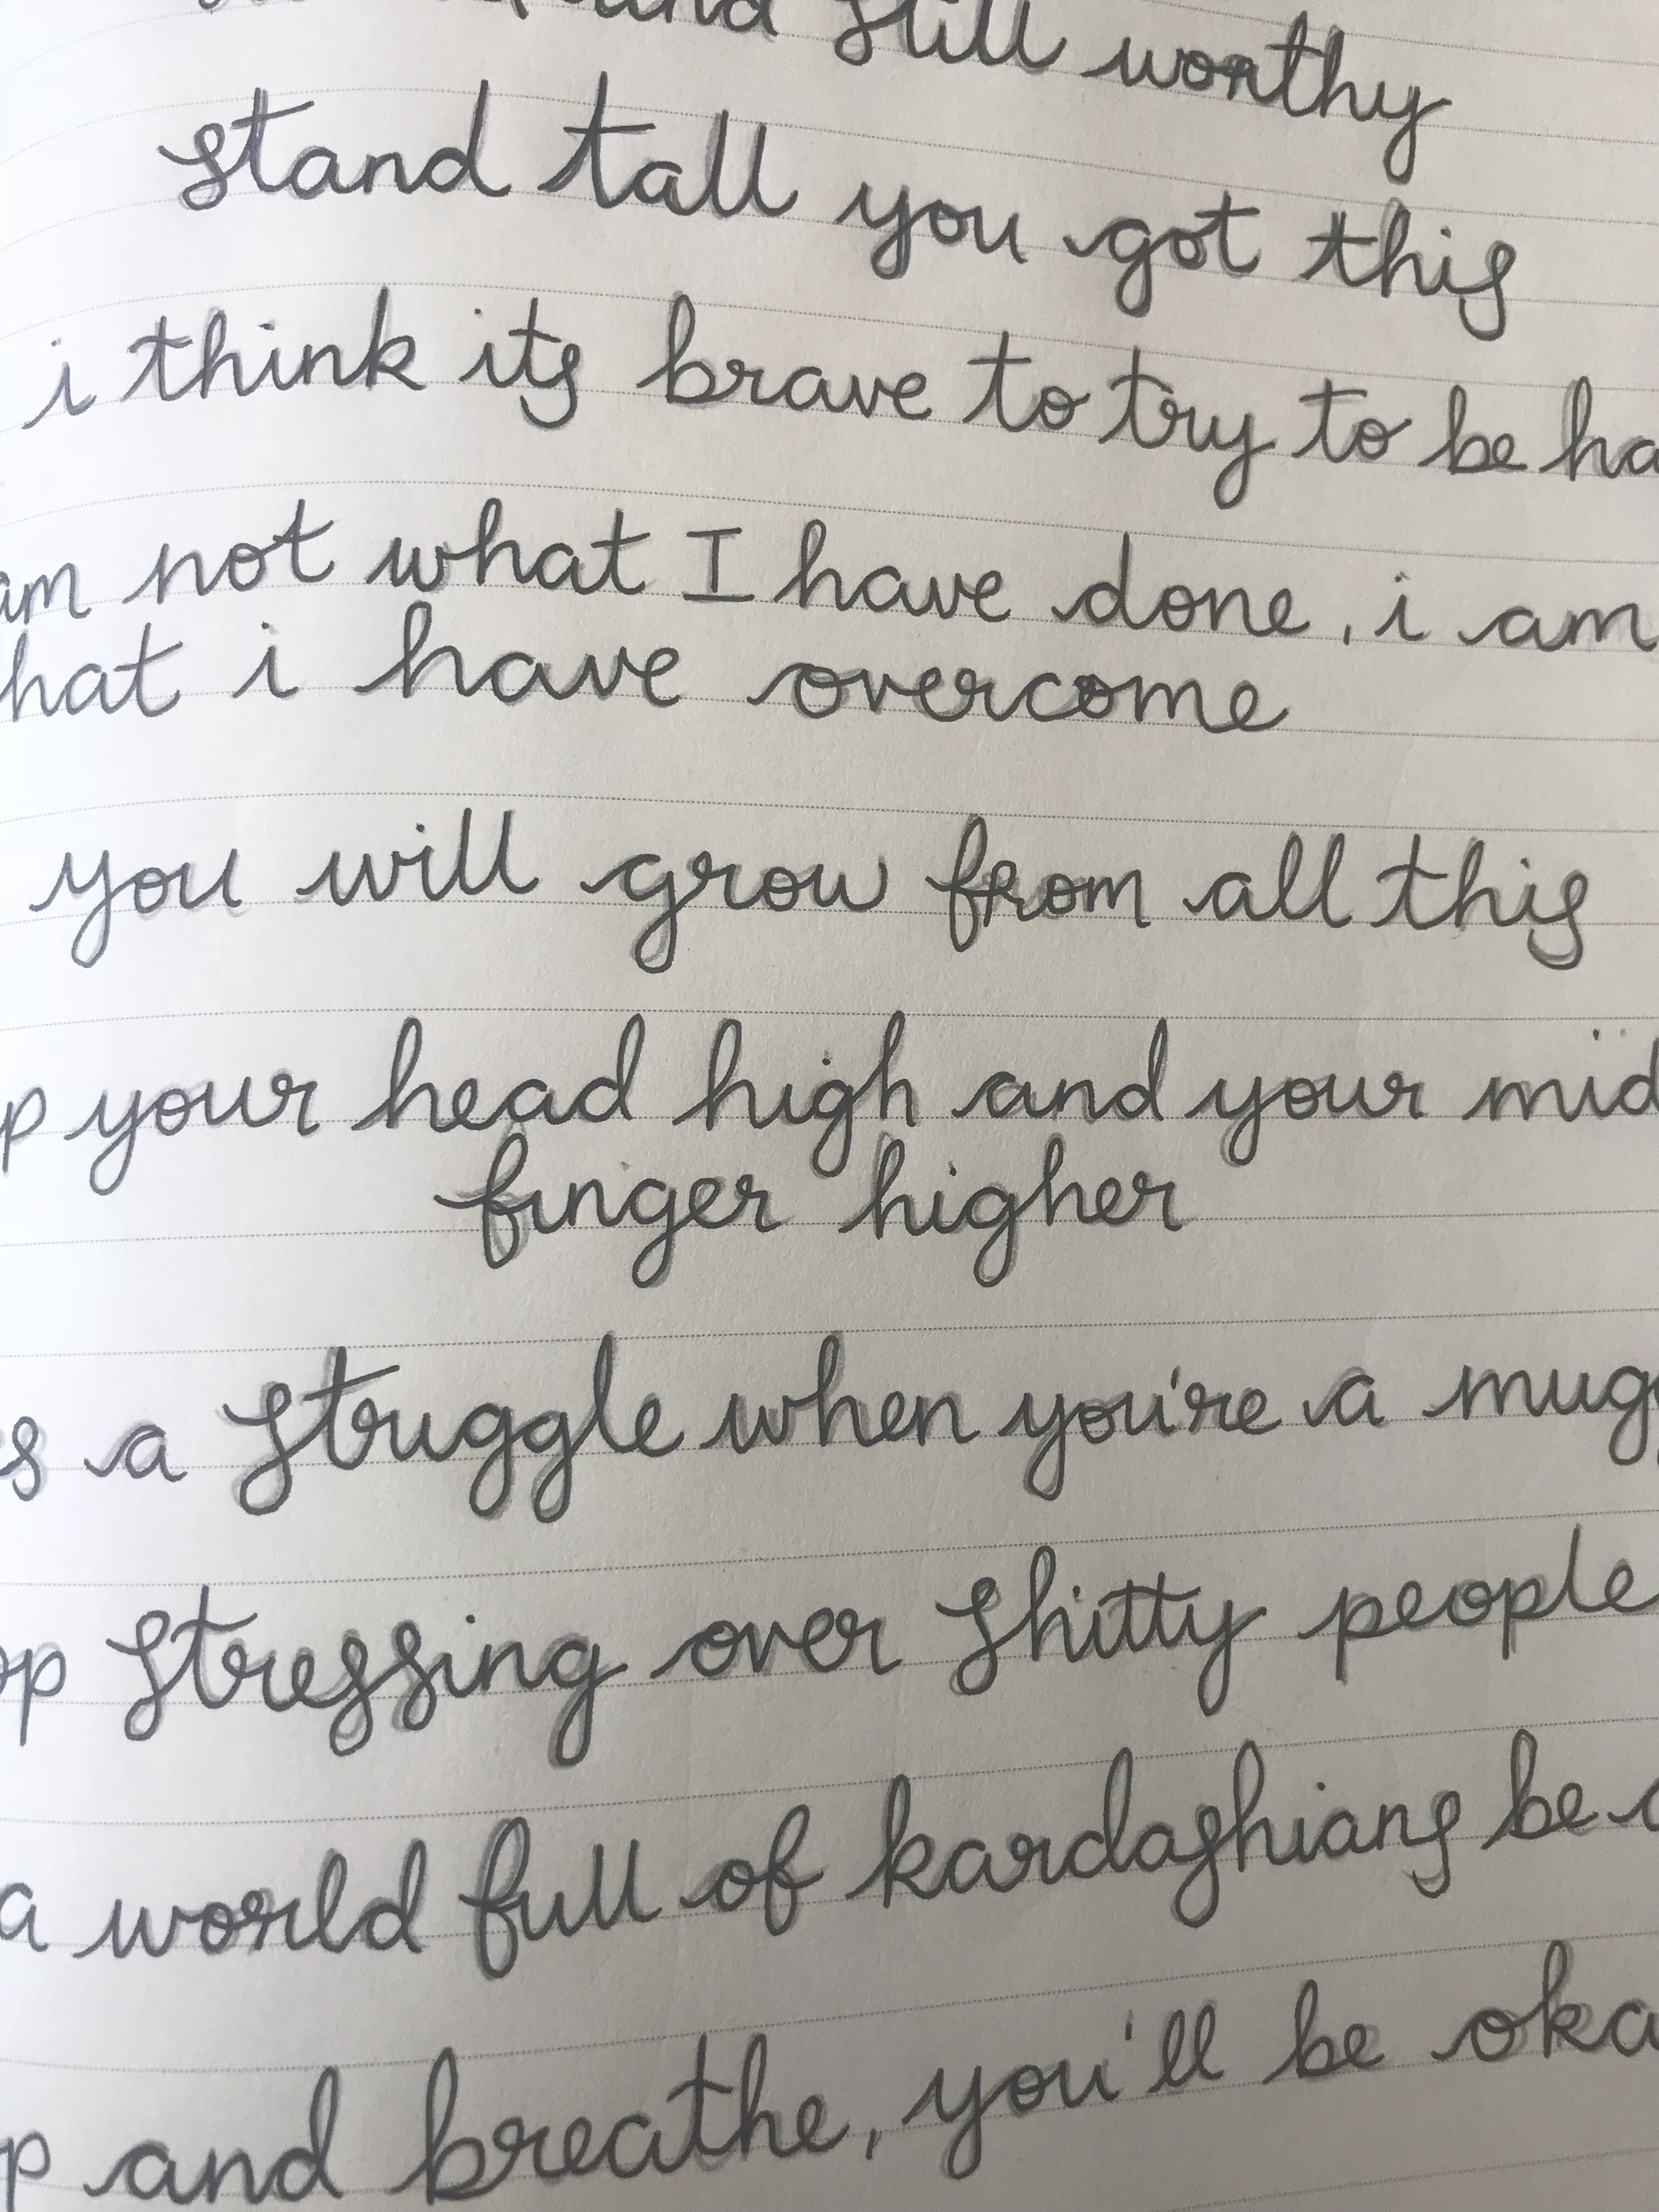 and still worthy
stand tall you got this
i think its brave to try to be ha
am not what I have done, i am
hat i have overcome
you will grow from all this
p your head high and your mid
finger higher
s a struggle when you're a mug
op stressing over shitty people
a world full of kardashians be a
p and breathe, you'll be oka